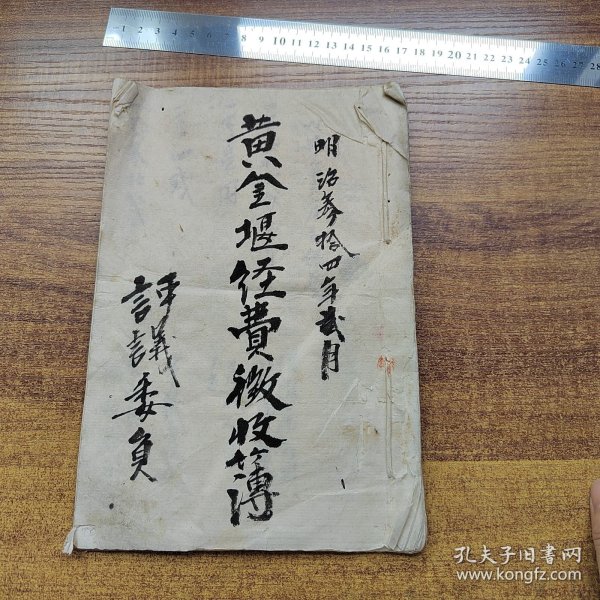 明治参拾四年貳月
黄金堰経費徴収簿
評議委員
1 2 3 4 5 6 7 8 9 10 11 12 13 14 15 16 17 18 19 20 21 22 23 24 25 26 27 28
孔夫子旧书网
www.kongfz.com